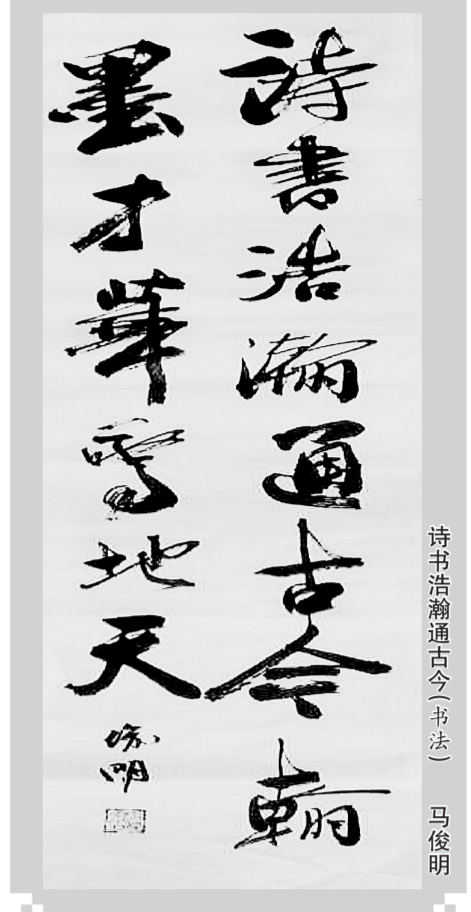 詩書浩瀚通古今翰
墨才華寫地天
俊明
诗书浩瀚通古今(书法) 马俊明